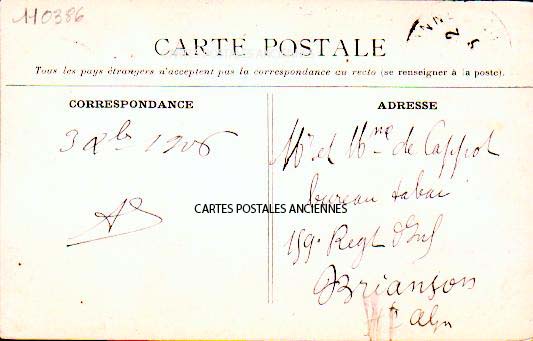 110386
CARTE POSTALE
Tous les pays étrangers n'acceptent pas la correspondance au recto (se renseigner à la poste).
CORRESPONDANCE
3 Xbre 1906
CARTES POSTALES ANCIENNES
ADRESSE
Mr et Mme de Cappot
bureau tabac
159e Regt d'Inf
Briançon
Htes Alpes